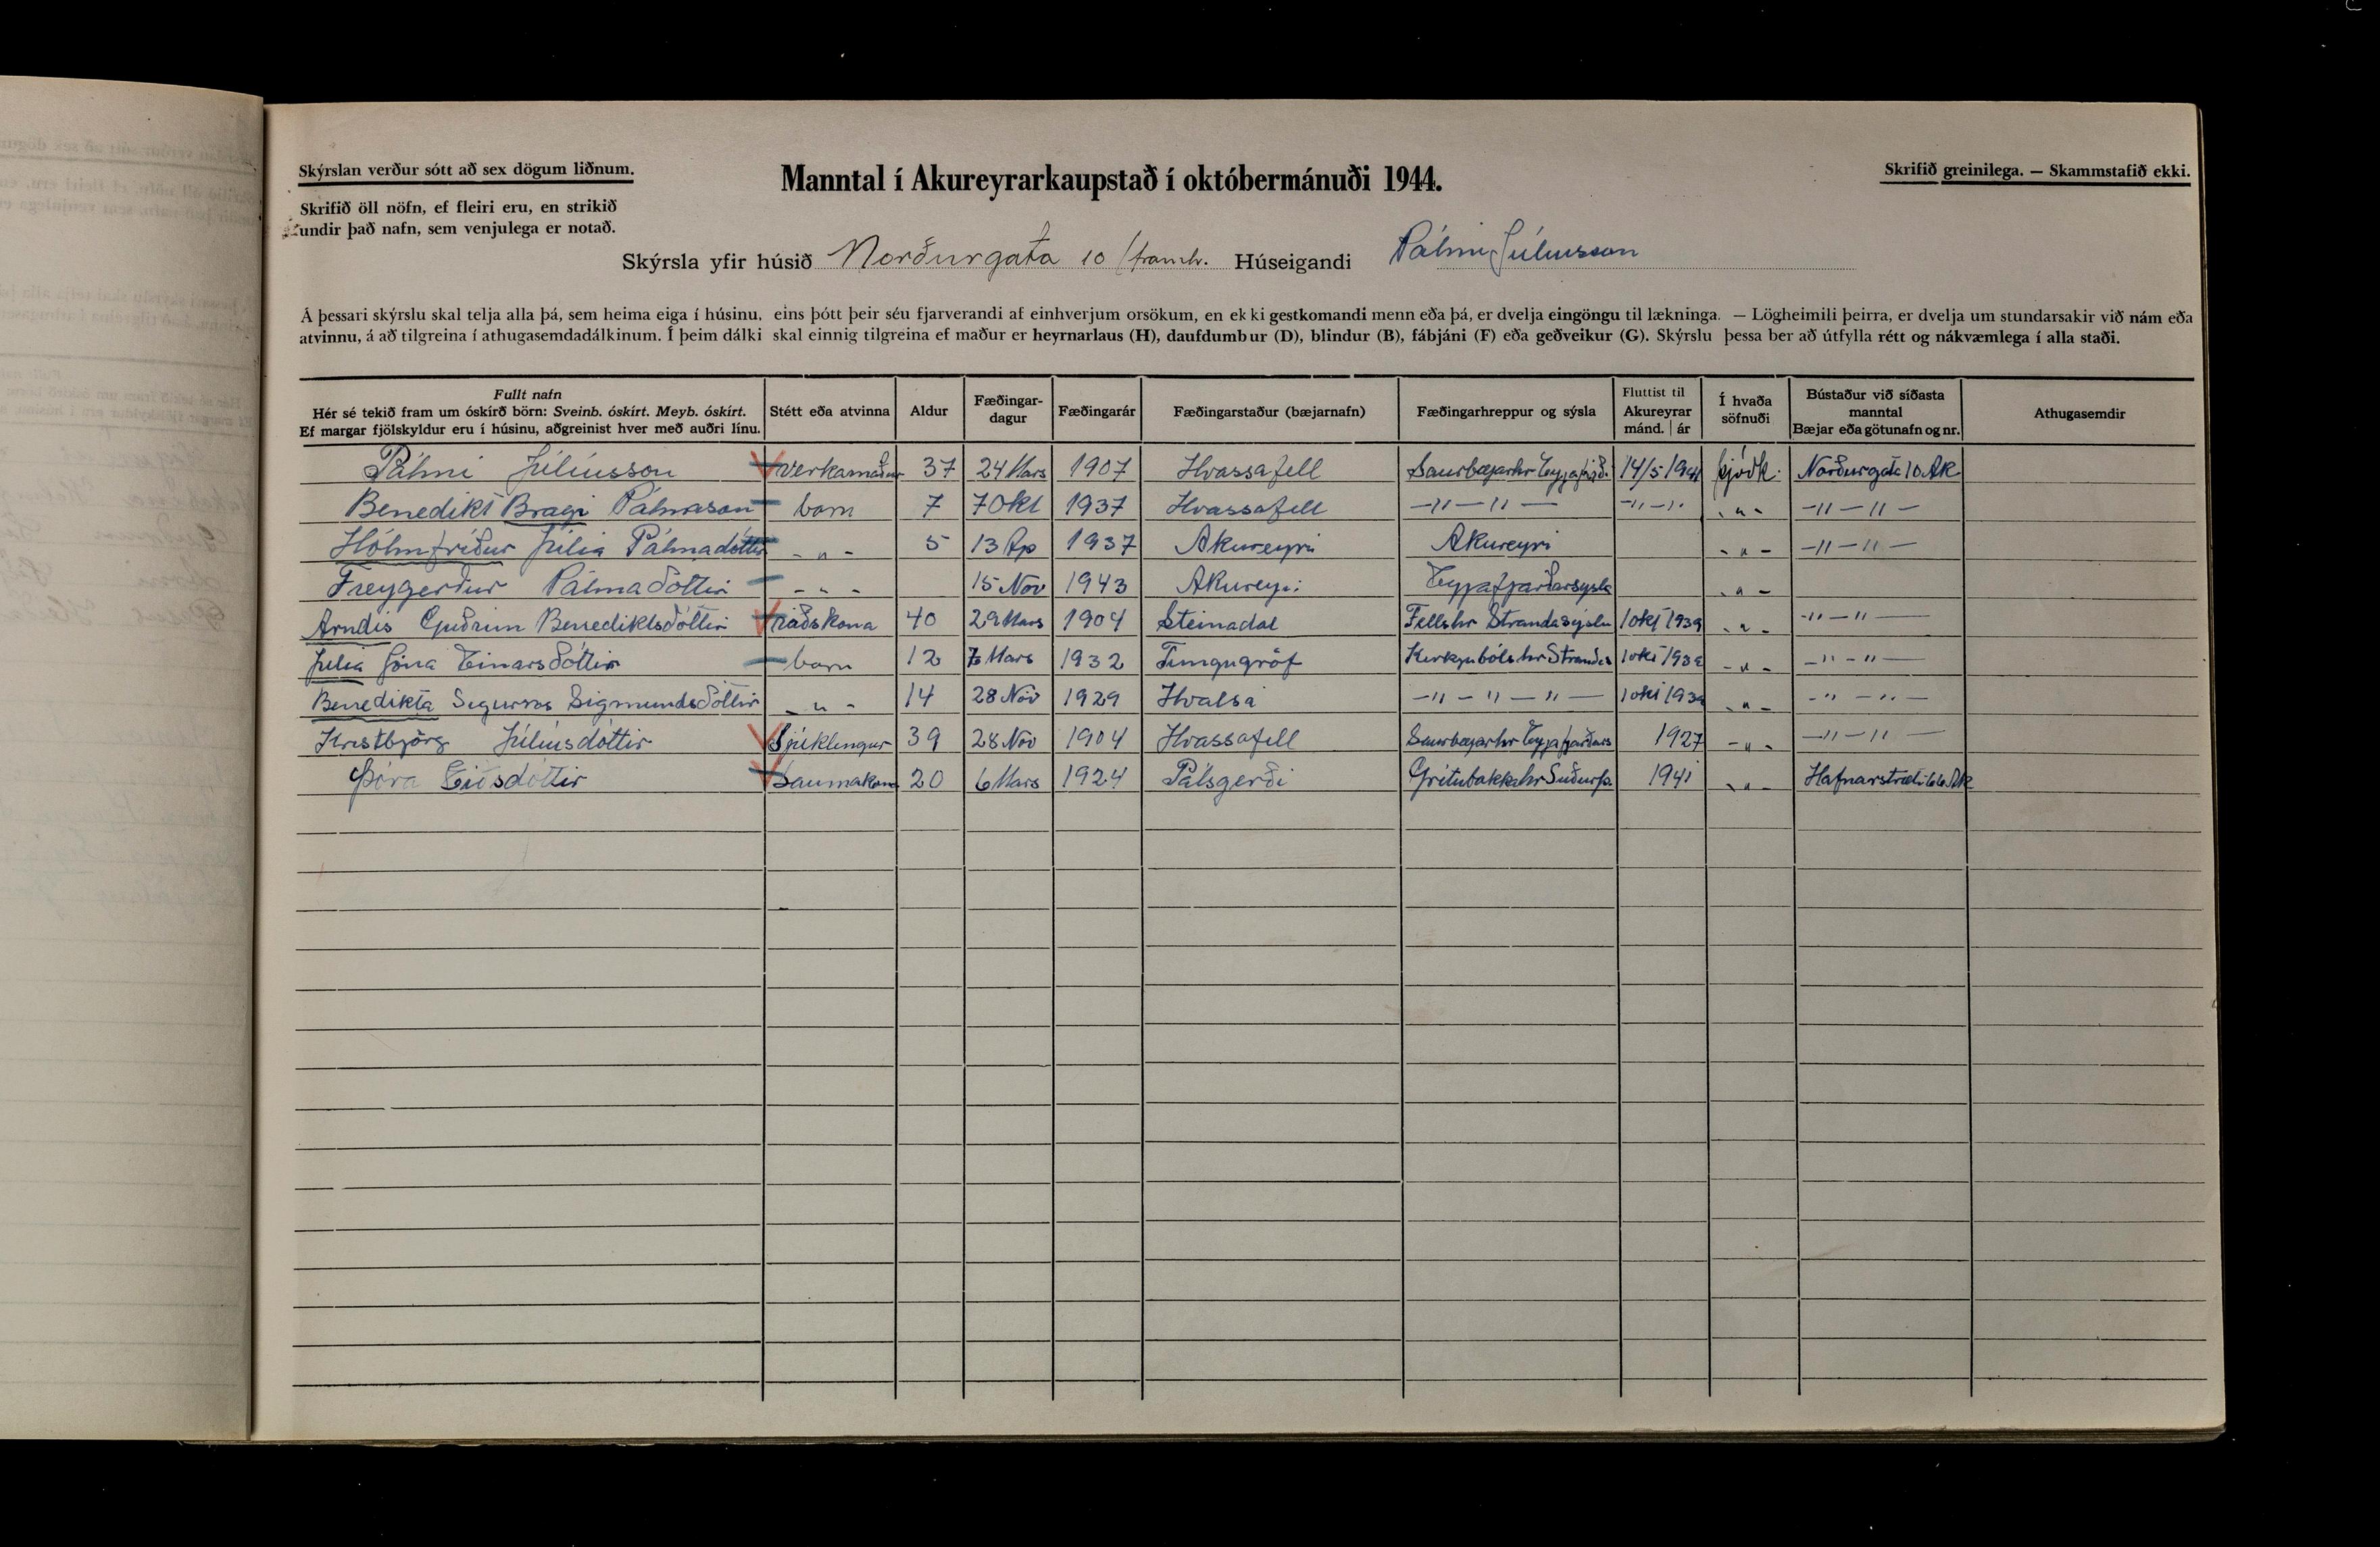 Skýrslan verður sótt að sex dögum liðnum.
Skrifið öll nöfn, ef fleiri eru, en strikið
undir það nafn, sem venjulega er notað.
Manntal í Akureyrarkaupstað í októbermánuði 1944.
Skrifið greinilega. — Skammstafið ekki.
Skýrsla yfir húsið Norðurgata 10 /framh. Húseigandi Pálmi Júlíusson
Á þessari skýrslu skal telja alla þá, sem heima eiga í húsinu, eins þótt þeir séu fjarverandi af einhverjum orsökum, en ekki gestkomandi menn eða þá, er dvelja eingöngu til lækninga. — Lögheimili þeirra, er dvelja um stundarsakir við nám eða
atvinnu, á að tilgreina í athugasemdadálkinum. Í þeim dálki skal einnig tilgreina ef maður er heyrnarlaus (H), daufdumbur (D), blindur (B), fábjáni (F) eða geðveikur (G). Skýrslu þessa ber að útfylla rétt og nákvæmlega í alla staði.
Fullt nafn
Hér sé tekið fram um óskírð börn: Sveinb. óskírt. Meyb. óskírt.
Ef margar fjölskyldur eru í húsinu, aðgreinist hver með auðri línu.
Stétt eða atvinna
Aldur
Fæðingar-
dagur
Fæðingarár
Fæðingarstaður (bæjarnafn)
Fæðingarhreppur og sýsla
Fluttist til
Akureyrar
mánd. | ár
Í hvaða
söfnuði
Bústaður við síðasta
manntal
Bæjar eða götunafn og nr.
Athugasemdir
Pálmi Júlíusson verkamaður 37 24 Mars 1907 Hvassafell Saurbæjarhr Eyjafjð. 14/5 1941 þjóðk. Norðurgata 10 Ak
Benedikt Bragi Pálmason barn 7 7 Okt 1937 Hvassafell -"-"- -"-". -"- -"-"-
Hólmfríður Júlía Pálmadóttir -"- 5 13 Ap 1937 Akureyri Akureyri -"- -"-"-
Freygerður Pálmadóttir -"- 15 Nov 1943 Akureyri Eyjafjarðarsýsla -"-
Arndís Guðrún Benediktsdóttir ráðskona 40 29 Mars 1904 Steinadal Fellshr Strandasýslu 1 okt 1939 -"- -"-"-
Júlía Jóna Einarsdóttir barn 12 7 Mars 1932 Tungugröf Kirkjubólshr Strandas 1 okt 1939 -"- -"-"-
Benedikta Sigurrós Sigmundsdóttir -"- 14 28 Nóv 1929 Hvalsá -"-"-"- 1 okt 1939 -"- -"-"-
Kristbjörg Júlíusdóttir Sjúklingur 39 28 Nóv 1904 Hvassafell Saurbæjarhr Eyjafjarðars 1927 -"- -"-"-
Þóra Saumakona 20 6 Mars 1924 Pálsgerði Grítubakkahr Suðurþ. 1941 -"- Hafnarstræti 66 Ak